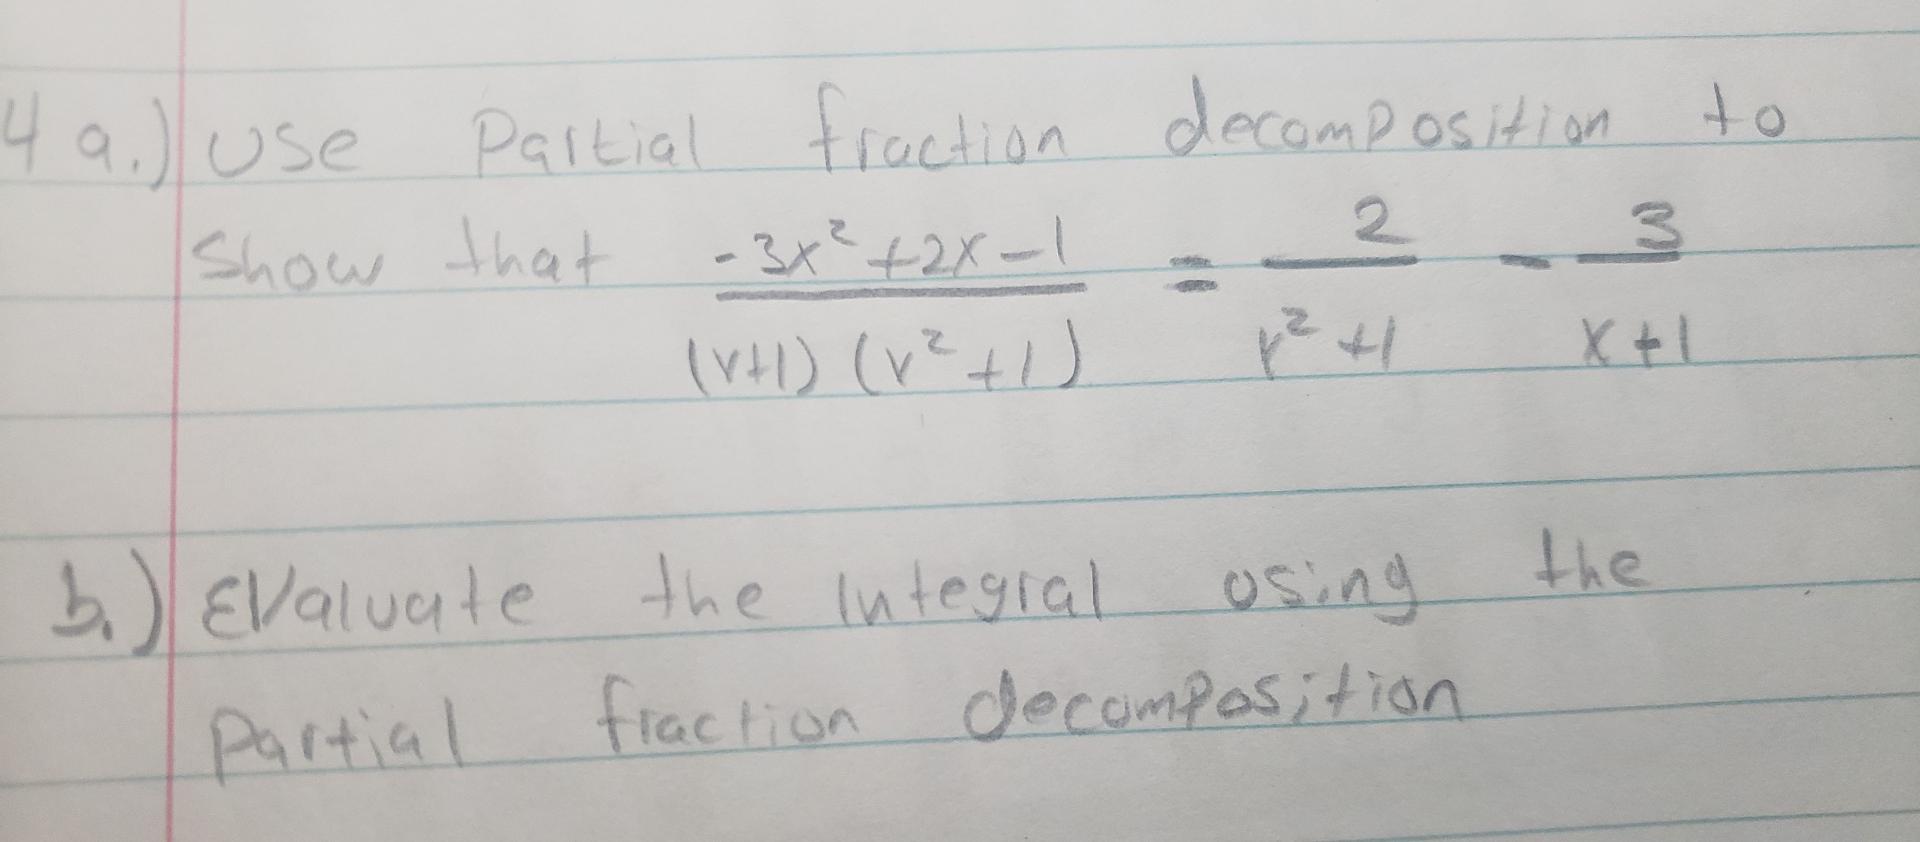 4 a.) Use Partial fraction decomposition to
Show that -3x² + 2x - 1 / (x+1) (x² + 1) = 2 / x² + 1 - 3 / x + 1
b.) Evaluate the Integral using the
Partial fraction decomposition